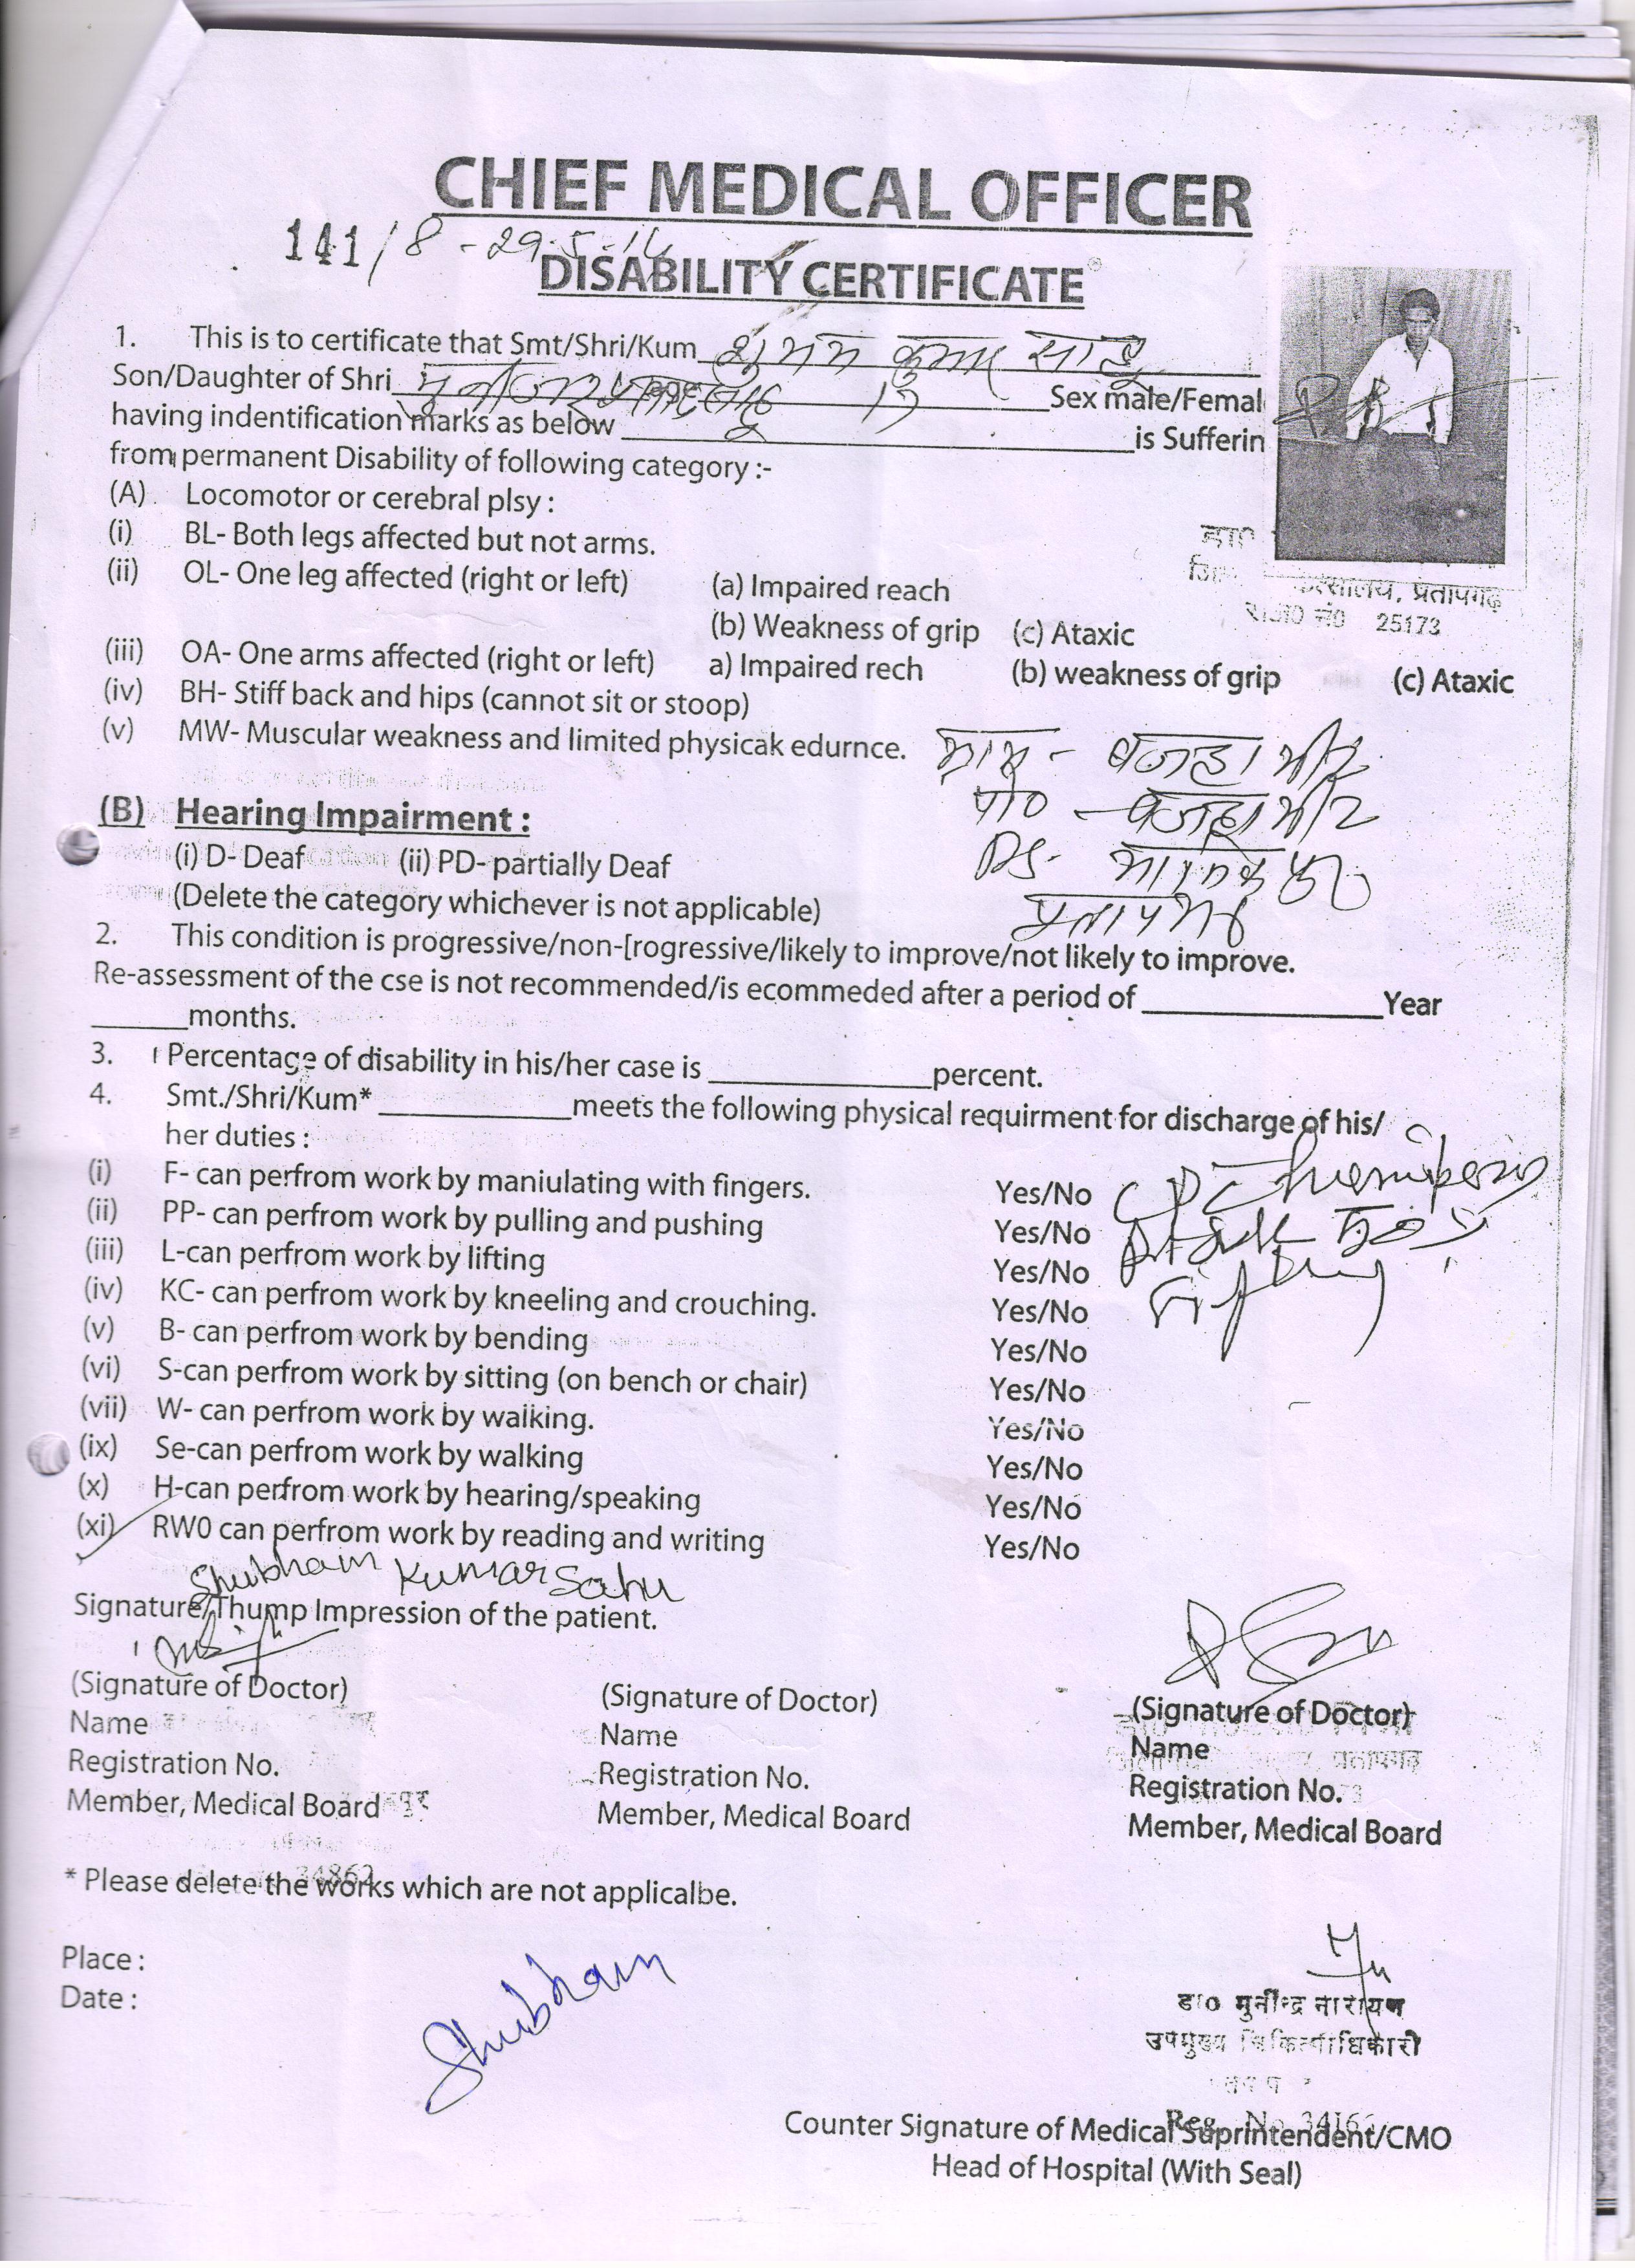 CHIEF MEDICAL OFFICER
141/8 - 29.5.
DISABILITY CERTIFICATE
1. This is to certificate that Smt/Shri/Kum शुभम कुमार साहू
Son/Daughter of Shri 17 Sex male/Femal
having indentification marks as below is Sufferin
from permanent Disability of following category :-
(A) Locomotor or cerebral plsy :
(i) BL- Both legs affected but not arms.
(ii) OL- One leg affected (right or left) (a) Impaired reach
(b) Weakness of grip (c) Ataxic
प्रतापगढ़
25173
(iii) OA- One arms affected (right or left) a) Impaired rech (b) weakness of grip (c) Ataxic
(iv) BH- Stiff back and hips (cannot sit or stoop)
(v) MW- Muscular weakness and limited physicak edurnce.
(B) Hearing Impairment :
(i) D- Deaf (ii) PD- partially Deaf
(Delete the category whichever is not applicable)
प्रतापगढ़
2. This condition is progressive/non-[rogressive/likely to improve/not likely to improve.
Re-assessment of the cse is not recommended/is ecommeded after a period of ____________Year
______months.
3. Percentage of disability in his/her case is ____________percent.
4. Smt./Shri/Kum* ____________meets the following physical requirment for discharge of his/
her duties :
(i) F- can perfrom work by maniulating with fingers. Yes/No
(ii) PP- can perfrom work by pulling and pushing Yes/No
(iii) L-can perfrom work by lifting Yes/No
(iv) KC- can perfrom work by kneeling and crouching. Yes/No
(v) B- can perfrom work by bending Yes/No
(vi) S-can perfrom work by sitting (on bench or chair) Yes/No
(vii) W- can perfrom work by walking. Yes/No
(ix) Se-can perfrom work by walking Yes/No
(x) H-can perfrom work by hearing/speaking Yes/No
(xi) RW0 can perfrom work by reading and writing Yes/No
Shubham Kumar Sahu
Signature/Thump Impression of the patient.
(Signature of Doctor) (Signature of Doctor) (Signature of Doctor)
Name Name Name
Registration No. Registration No. Registration No.
Member, Medical Board Member, Medical Board Member, Medical Board
34862
* Please delete the works which are not applicalbe.
Place :
Date :
Shubham
डा० मुनीन्द्र नारायण
उपमुख्य चिकित्साधिकारी
Reg. No.
Counter Signature of Medical Suprintendent/CMO
Head of Hospital (With Seal)